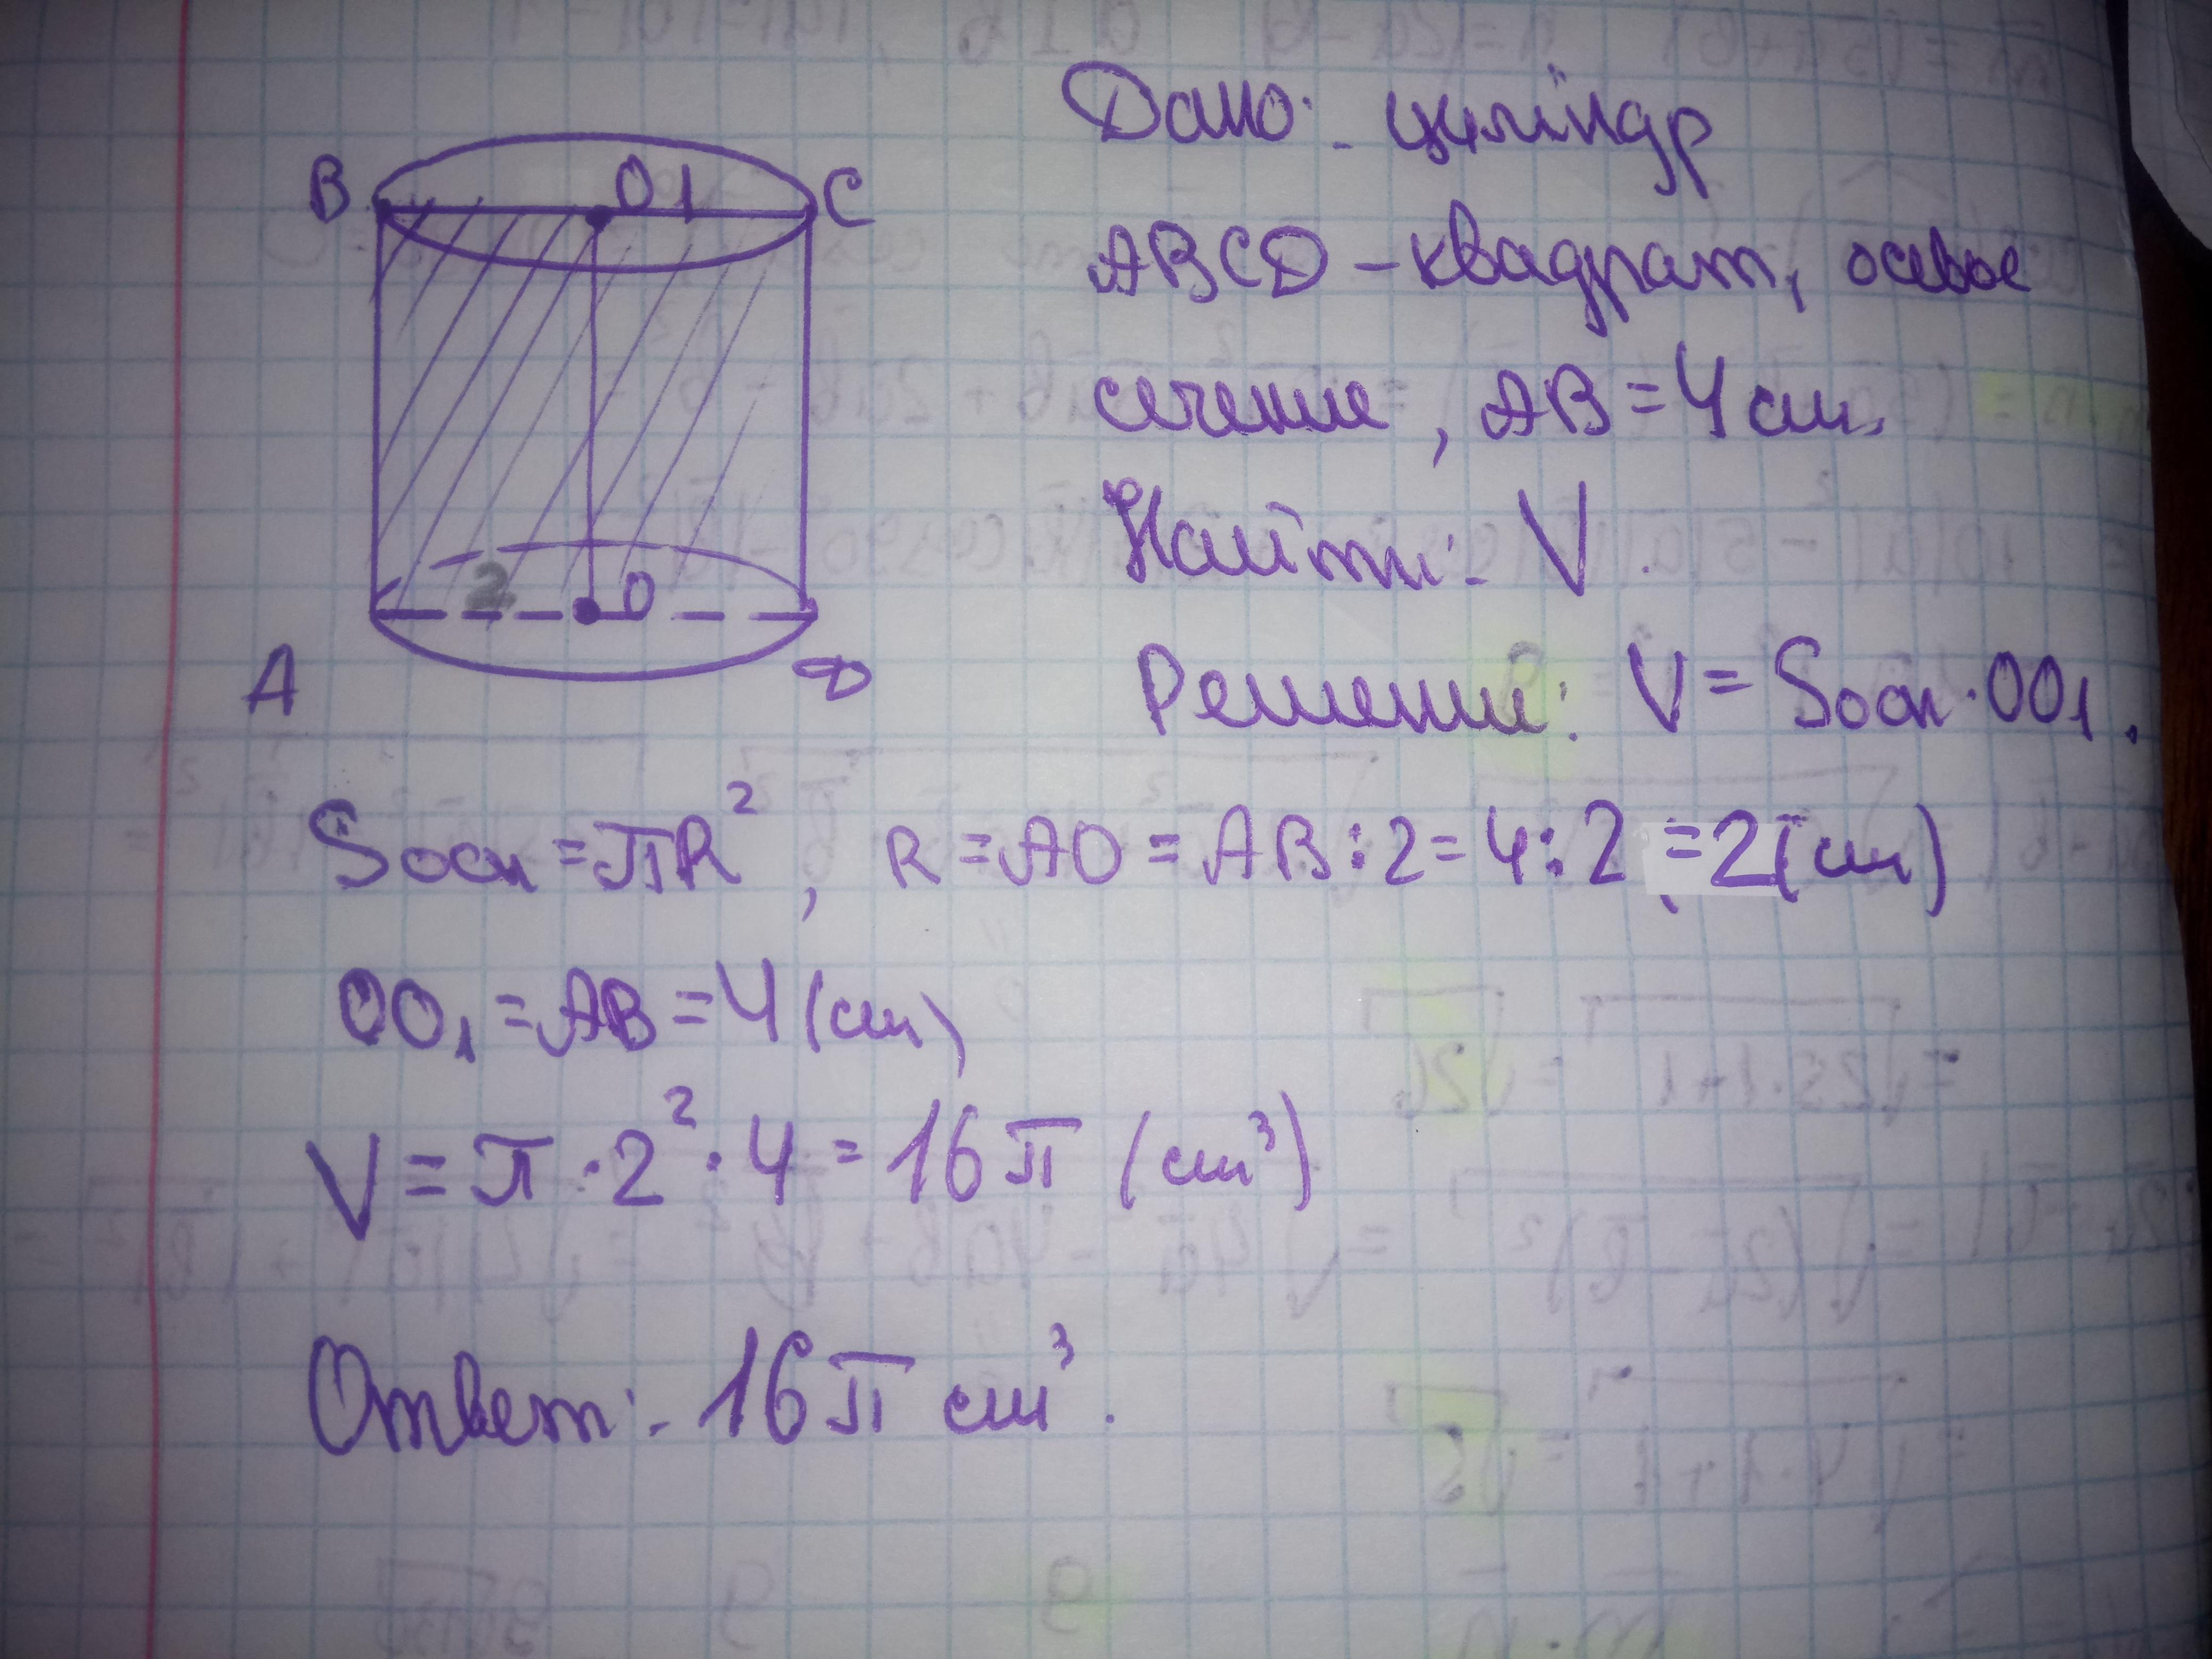 B O1 C
2 O
A D
Дано: цилиндр
ABCD - квадрат, осевое
сечение, AB = 4 см.
Найти: V.
Решение: V = Sосн · OO₁.
Sосн = πR², R = AO = AB : 2 = 4 : 2 = 2 (см)
OO₁ = AB = 4 (см)
V = π · 2² · 4 = 16π (см³)
Ответ: 16π см³.